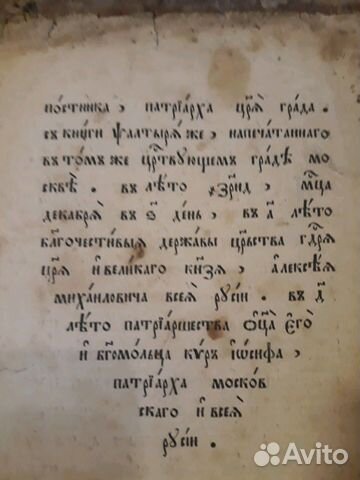 по́стника, патрїа́рха цр҃ѧ̀ гра́да.
съ кни́ги ѱалты́рѧ же, напеча́таннаго
въ то́мъ же црⷭ҇твующемъ гра́дѣ мо
сквѣ̀. въ лѣ́то ҂зр҃нд, мцⷭ҇а
декабрѧ̀ въ ѳ҃ де́нь, въ а҃ лѣ́то
бл҃гочести́выѧ держа́вы црⷭ҇тва гдⷭ҇рѧ
цр҃ѧ̀ и҆ вели́каго кн҃зѧ, а҆леѯѣ́ѧ
миха́иловича всеѧ̀ рѹсїи. въ д҃
лѣ́то патрїа́ршества ѻ҆ц҃а̀ є҆гѡ̀
и҆ бг҃омо́льца кѵ́ръ і҆ѡ́сифа,
патрїа́рха моско́в
скаго и҆ всеѧ̀
рѹсїи.
Avito